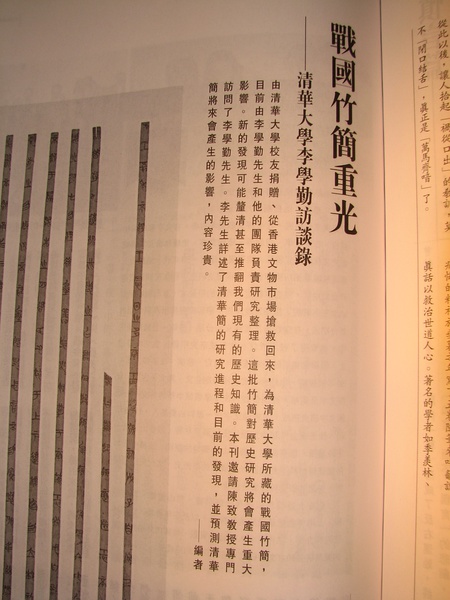 從此以後，讓人拾起「禍從口出」的
不「閉口結舌」，真正是「萬馬齊喑」了。
真話以救治世道人心。著名的學者如季羨林、
戰國竹簡重光
——清華大學李學勤訪談錄
由清華大學校友捐贈、從香港文物市場搶救回來，為清華大學所藏的戰國竹簡，
目前由李學勤先生和他的團隊負責研究整理。這批竹簡對歷史研究將會產生重大
影響。新的發現可能釐清甚至推翻我們現有的歷史知識。本刊邀請陳致教授專門
訪問了李學勤先生。李先生詳述了清華簡的研究進程和目前的發現，並預測清華
簡將來會產生的影響，內容珍貴。
——編者